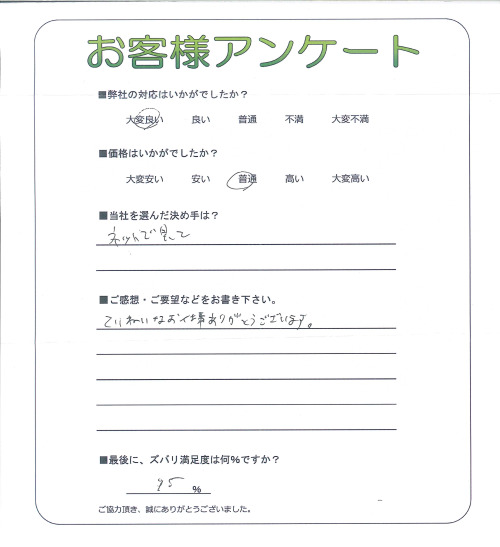 お客様アンケート
■弊社の対応はいかがでしたか？
大変良い 良い 普通 不満 大変不満
■価格はいかがでしたか？
大変安い 安い 普通 高い 大変高い
■当社を選んだ決め手は？
ネットで見て
■ご感想・ご要望などをお書き下さい。
ていねいなお仕事ありがとうございます。
■最後に、ズバリ満足度は何％ですか？
95 %
ご協力頂き、誠にありがとうございました。